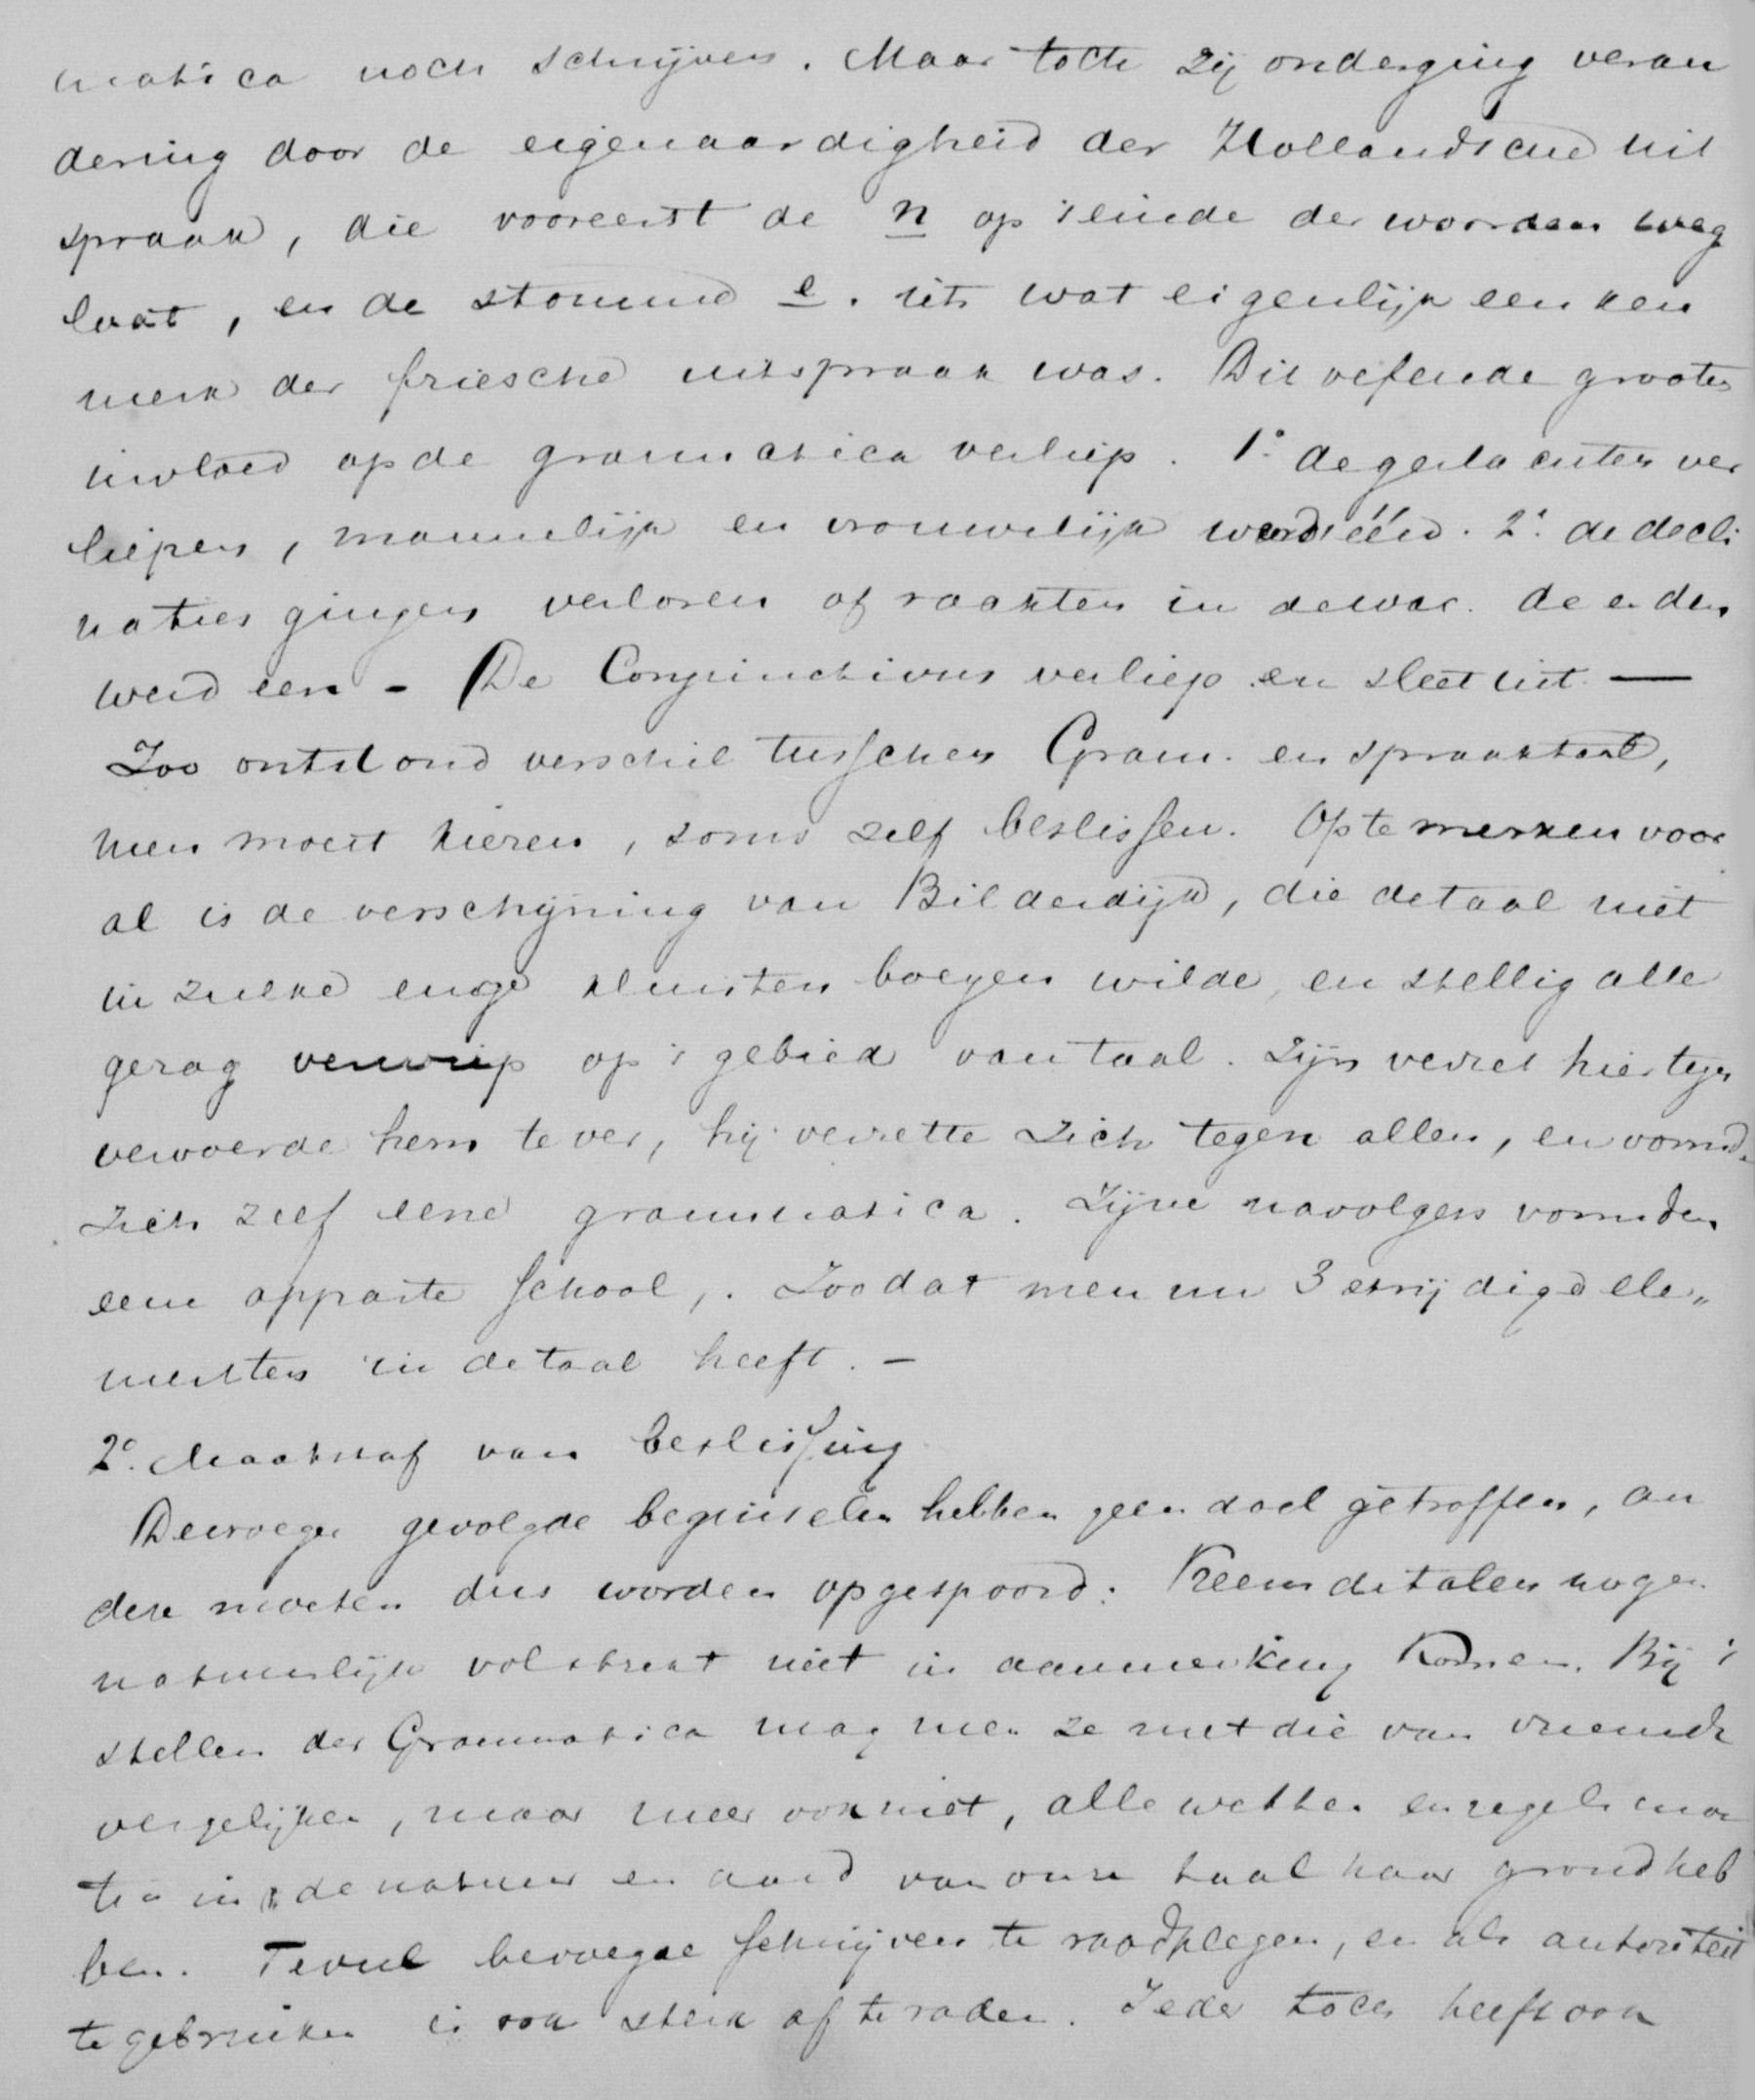 matica noch schrijvers. Maar toch zij onderging veran
dering door de eigenaardigheid der Hollandsche uit
spraak, die vooreerst de n op 't einde der woorden weg
laat, en de stomme e. iets wat eigenlijk een ken
merk der friesche uitspraak was. Dit oefende grooten
invloed op de grammatica verliep. 1° de geslachten ver
liepen, mannelijk en vrouwelijk werd één. 2° de decli
naties gingen verloren of raakten in de war. de en den
werd een - De Conjunctivus verliep en sleet uit. —
Zoo ontstond verschil tusschen Gram. en spraaktaal,
men moest kiezen, soms zelf beslissen. Op te merken voor
al is de verschijning van Bilderdijk, die de taal niet
in zulke enge kluisters boeyen wilde, en stellig alle
gezag verwierp op 't gebied van taal. Zijn verzet hiertegen
vervoerde hem te ver, hij verzette zich tegen allen, en vormde
zich zelf eene grammatica. Zijne navolgers vormden
eene apparte school,. Zoodat men nu 3 strijdige ele„
menten in de taal heeft. —
2° Maatstaf van beslissing
De vroeger gevolgde beginselen hebben geen doel getroffen, an
dere moeten dus worden opgespoord: Vreemde talen mogen
natuurlijk volstrekt niet in aanmerking komen. Bij 't
stellen der Grammatica mag men ze met die van vreemde
vergelijken, maar meer ook niet, alle wetten en regels moe
ten in de natuur en aard van onze taal haar grond heb
ben. Te veel bevoegde schrijvers te raadplegen, en als autoriteit
te gebruiken is ook sterk af te raden. Ieder toch heeft ook